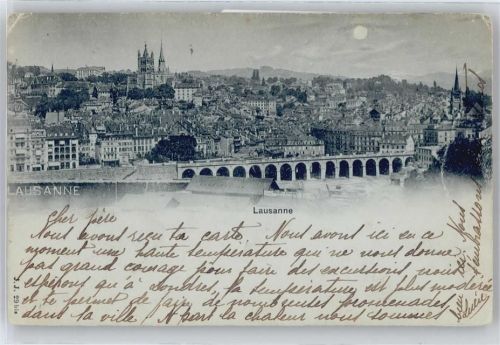 LAUSANNE
Lausanne
J. J. 891
Cher père
Nous avons reçu ta carte. Nous avons ici en ce
moment une haute température qui ne nous donne
pas grand courage pour faire des excursions, nous
espérons qu'à Londres, la température est plus modérée
et te permet de faire de nombreuses promenades
dans ta ville A part la chaleur nous sommes
bien ici. Nous
embrassons